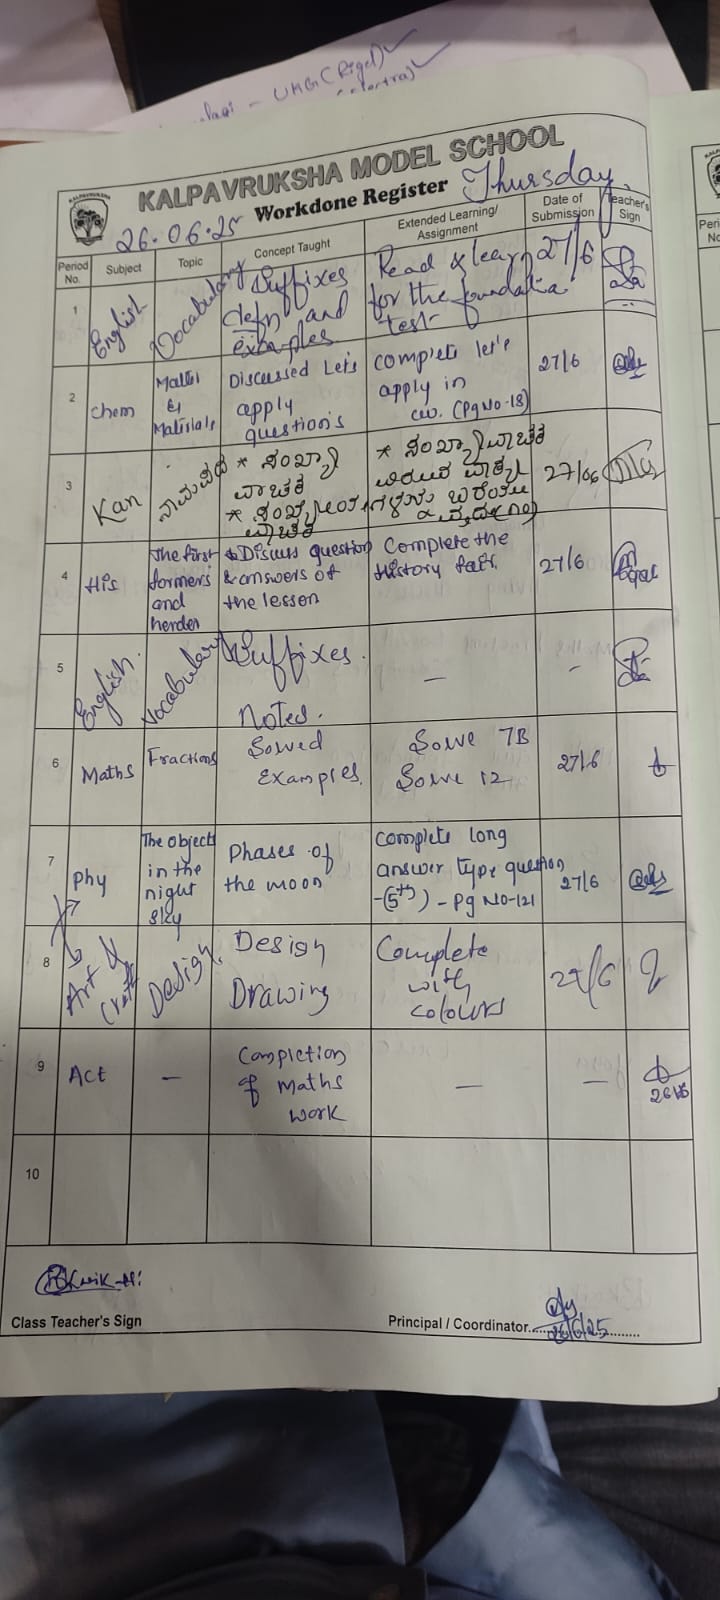 UKG (Rigel)
KALPAVRUKSHA MODEL SCHOOL
26.06.25 Workdone Register Thursday
Period No. Subject Topic Concept Taught Extended Learning/ Assignment Date of Submission Teacher's Sign
1 English Vocabulary Suffixes defn and examples Read & learn for the foundation test 27/6
2 Chem Matter & Materials Discussed Let's apply question's complete let's apply in cw. (Pg No-18) 27/6
3 Kan ನಾಮಪದ * ಸಂಖ್ಯಾ ವಾಚಕ * ಸಂಖ್ಯಾ ವಾಚಕ 27/06
4 His The first formers and herder Discuss question & answers of the lesson Complete the History fair. 27/6
5 English. Vocabulary Suffixes. Notes. — -
6 Maths Fractions Solved Examples. Solve 7B Solve 12 27/6
7 Phy The objects in the night sky Phases of the moon Complete long answer type question -(5th) - Pg NO-121 27/6
8 Art & Craft Design. Design Drawing Complete with colours 27/6
9 ACT — Completion of maths work — — 26/6
10
Class Teacher's Sign Principal / Coordinator 26/6/25